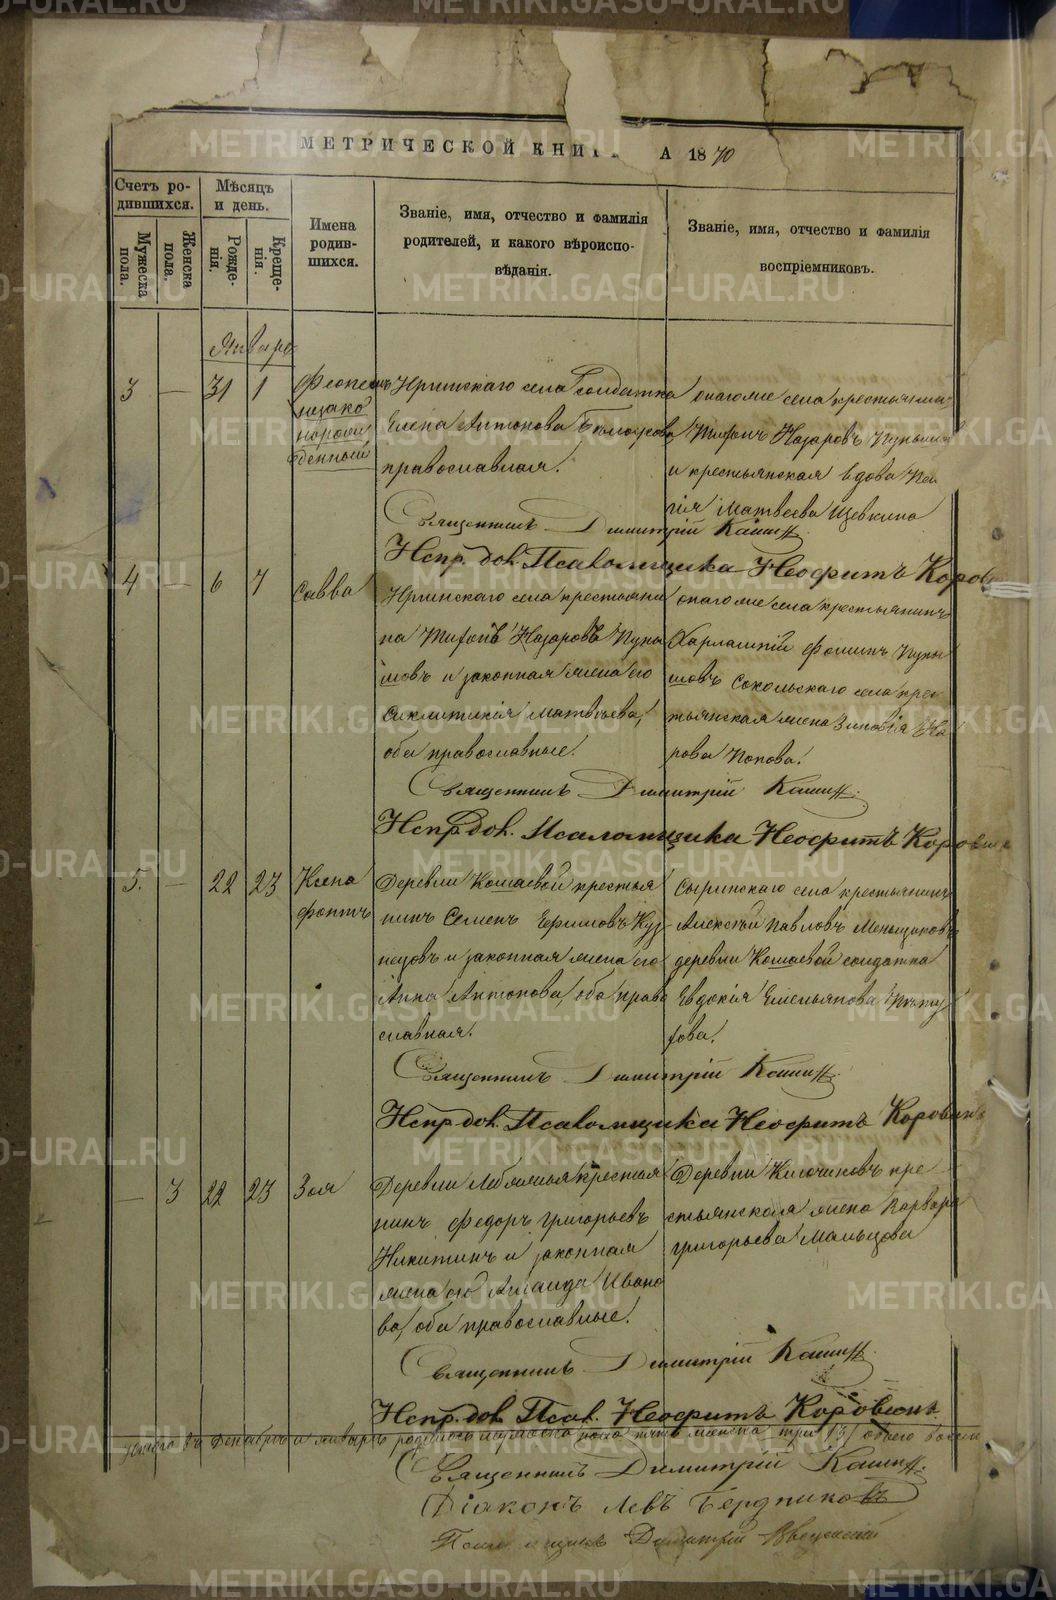 МЕТРИЧЕСКОЙ КНИГ А 1870
Счетъ ро-
дившихся.
Мужеска
пола.
Женска
пола.
Мѣсяцъ
и день.
Рожде-
нія.
Креще-
нія.
Имена
родив-
шихся.
Званіе, имя, отчество и фамилія
родителей, и какого вѣроиспо-
вѣданія.
Званіе, имя, отчество и фамилія
воспріемниковъ.
Январь
3 — 31 1
незако
норож
денный
Иргинскаго села Солдатка
Елена Антонова
православная.
онагоже села крестьянинъ
Тифонъ Назаровъ
и крестьянская вдова
гія Матвеева Щевкина
Священникъ Димитрій Кашинъ
Испр. дол. Псаломщика Неофитъ Коров
4 — 6 7 Савва
Иргинскаго села крестьяни
на Тифонъ Назаровъ Пупы
шовъ и законная жена его
Синклитикія Матвѣева,
оба православные.
онагоже села крестьянинъ
Харлампій Фоминъ Пупы
шовъ Сокольскаго села крес
тьянская жена Зиновія
рова Попова.
Священникъ Димитрій Кашинъ
Испр. дол. Псаломщика Неофитъ Коровинъ
5. — 22 23 Ксено
фонтъ
Деревни Кошаевой крестья
нинъ Семенъ Ефимовъ Куз
нецовъ и законная жена его
Анна Антонова, оба право
славная.
Сыринскаго села крестьянинъ
Алексѣй Павловъ Меньщиковъ
деревни Кошаевой солдатка
Евдокія Емельянова
Священникъ Димитрій Кашинъ
Испр. дол. Псаломщика Неофитъ Коровинъ
— 3 22 23 Зоя
Деревни Лебяжья крестья
нинъ Федоръ Григорьевъ
Никитинъ и законная
жена его Ивано
ва, оба православные.
Деревни Ключиковъ кре
стьянская жена Варвара
Григорьева Мальцова
Священникъ Димитрій Кашинъ
Испр. дол. Псал. Неофитъ Коровинъ
Итого въ Декабрѣ и Январѣ родилось мужеска пола пять женска три /3/ обоего
Священникъ Димитрій Кашинъ
Діаконъ Левъ Бердниковъ
Псаломщикъ Димитрій Введенскій
METRIKI.GASO-URAL.RU